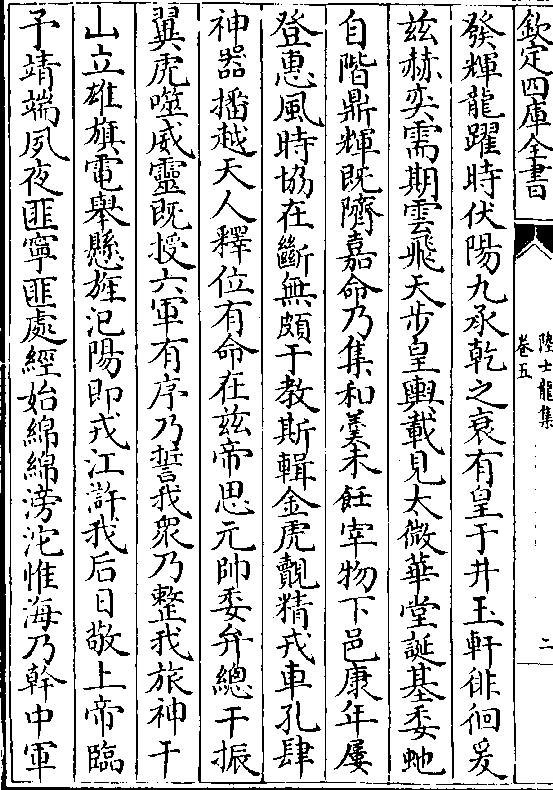 欽定四庫全書
陸士龍集
卷五
二
發輝龍躍時伏陽九承乾之衰有皇于井玉軒徘徊爰
兹赫奕需期雲飛天步皇輿載見太微華堂誕基委虵
自階鼎輝既隮嘉命乃集和羹未飪宰物下邑康年屢
登惠風時協在斷無頗于教斯輯金虎覿精戎車孔肆
神器播越天人釋位有命在兹帝思元帥委弁總干振
翼虎噬威靈既授六軍有序乃誓我衆乃整我旅神干
山立雄旗電舉懸旌汜陽即戎江滸我后日敬上帝臨
予靖端夙夜匪寧匪處經始綿綿滂沱惟海乃幹中軍